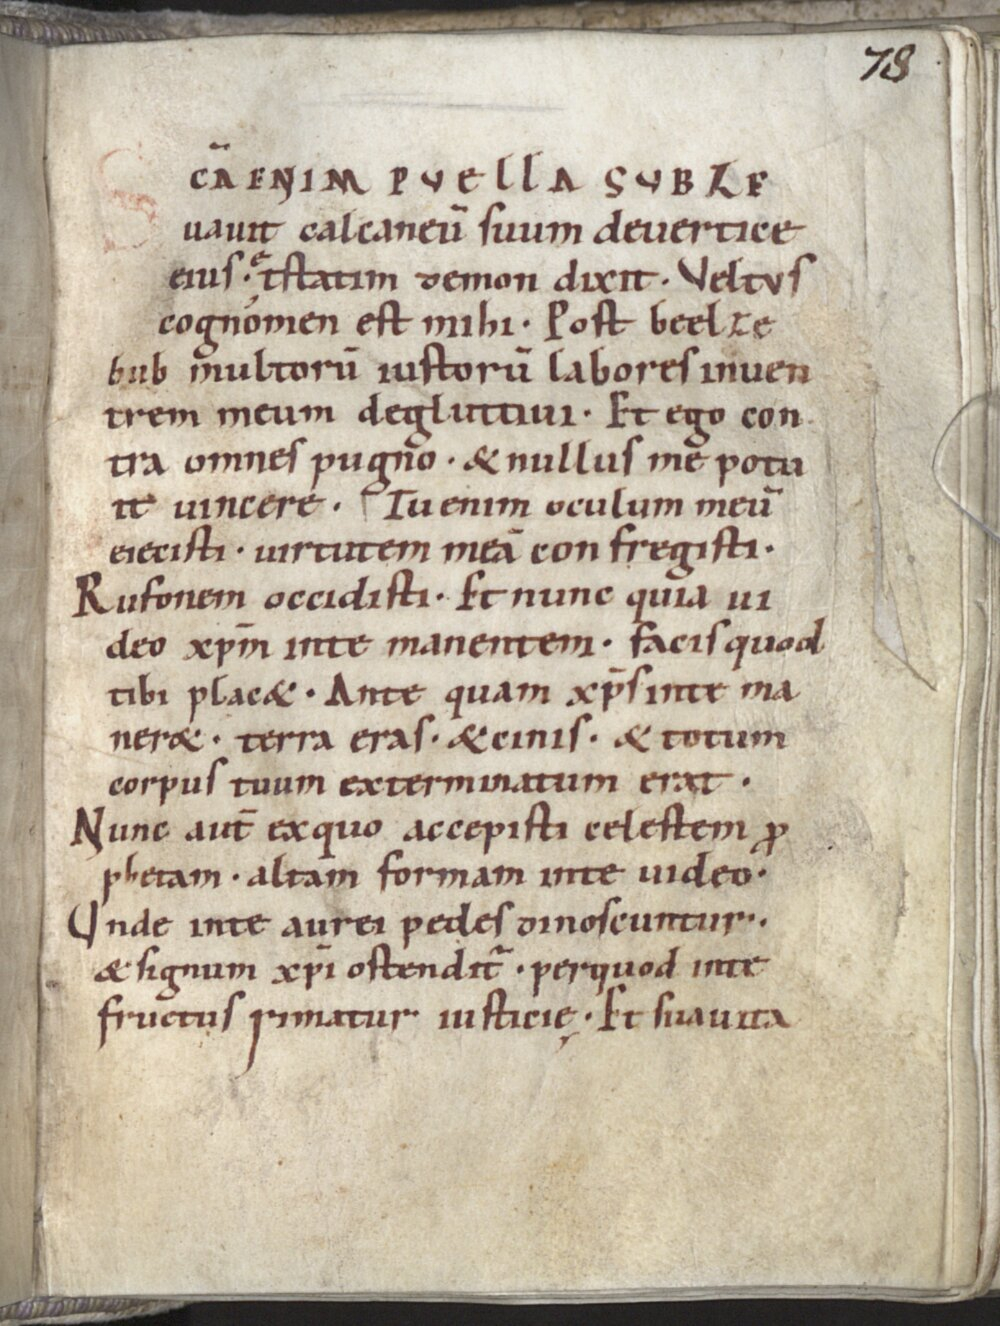 78
SCĀ ENIM PUELLA SUBLE
uauit calcaneū suum deuertice
eius · & statim demon dixit · Veltus
cognomen est mihi · Post beelze
bub multorū iustorū labores inuen
trem meum degluttiui · Et ego con
tra omnes pugno · & nullus me potu
it uincere · Tu enim oculum meū
eiecisti · uirtutem meā confregisti ·
Rufonem occidisti · Et nunc quia ui
deo xp̄m inte manentem · facis quod
tibi plac& · Ante quam xp̄s inte ma
ner& · terra eras · & cinis · & totum
corpus tuum exterminatum erat ·
Nunc aut̄ exquo accepisti celestem ꝓ
phetam · altam formam inte uideo ·
Unde inte aurei pedes dinoscuntur ·
& signum xp̄i ostendit̄ · perquod inte
fructus rimatur iusticię · Et suauita